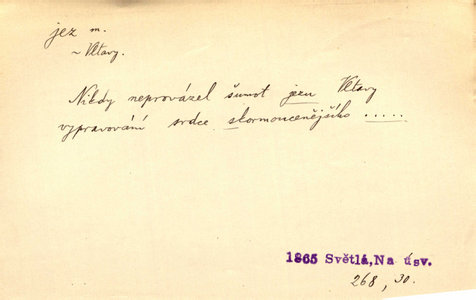 jez m.
~ Vltavy.
Nikdy neprovázel šumot jezu Vltavy
vypravování srdce skormoucenějšího .....
1865 Světlá,Na úsv.
268, 30.